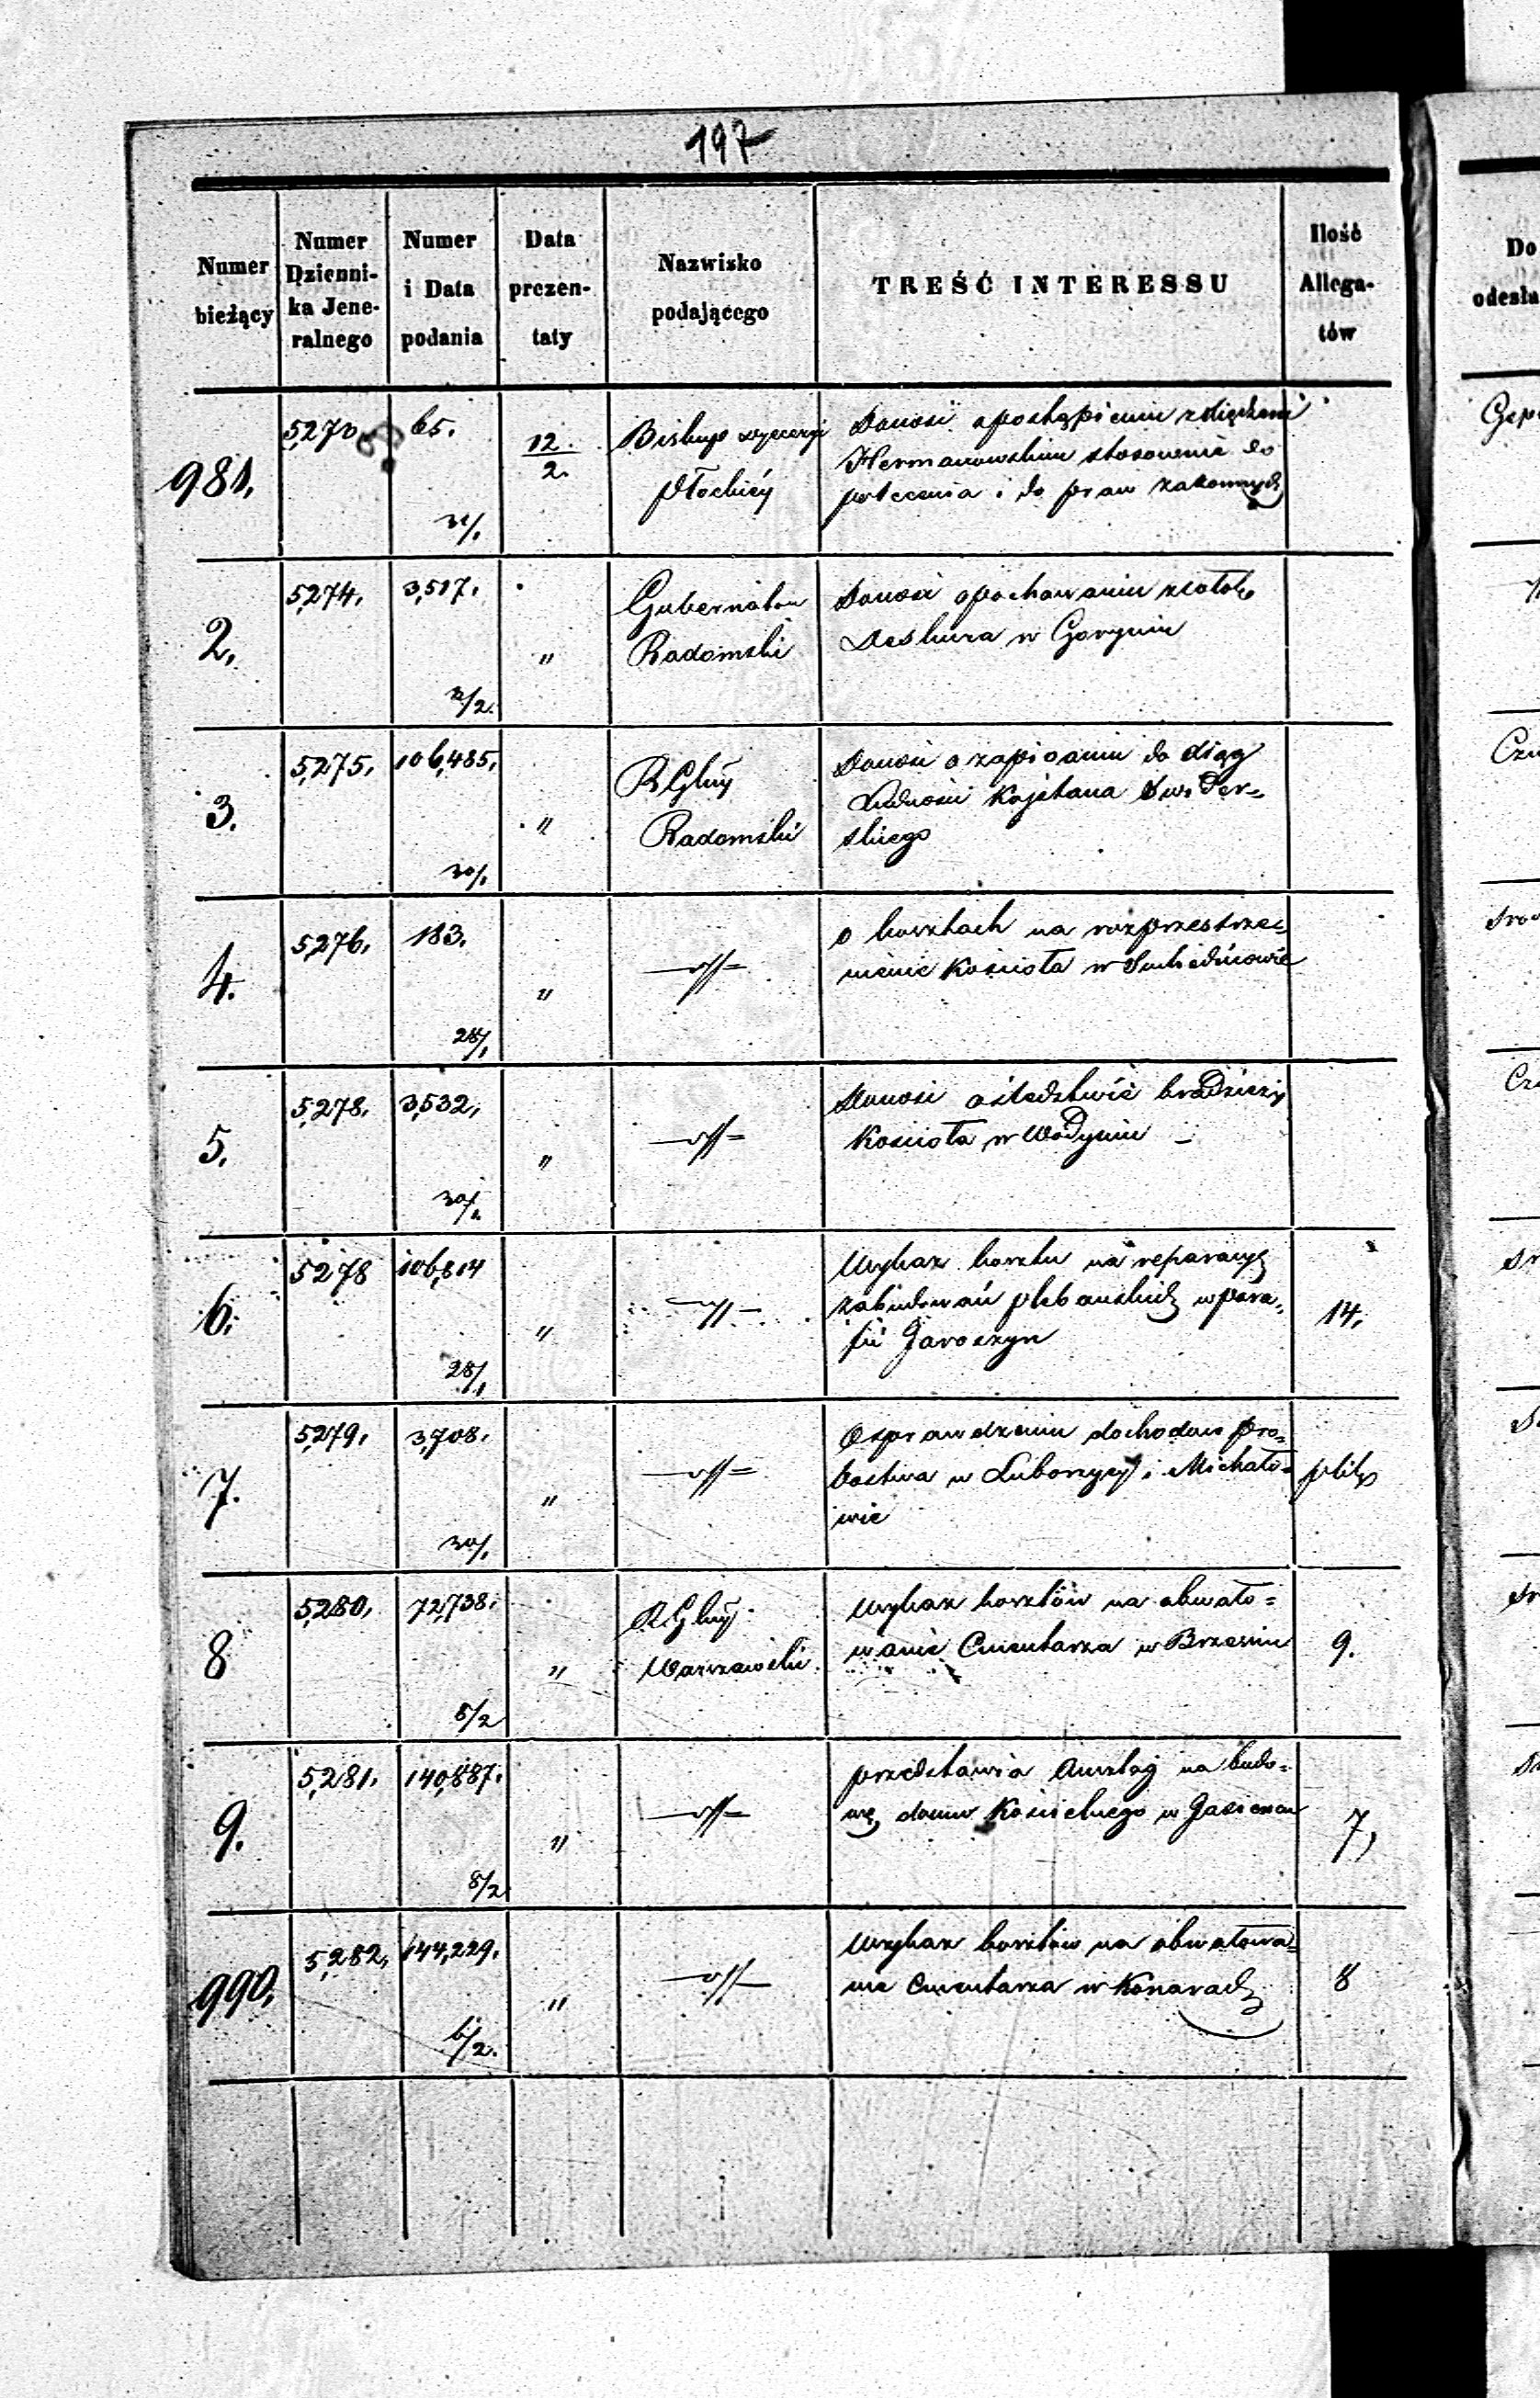 197
Numer bieżący
Numer Dzienni-ka Jene-ralnego
Numer i Data podania
Data prezen-taty
Nazwisko podającego
TREŚĆ INTERESSU
Ilość Allega-tów
Do odesła
981. 5,270 65. 31/1 12/2. Biskup dyecezyi Donosi o postąpieniu z Xiędzem
płockiéj Hermanowskim stosownie do
polecenia i do praw zakonnych
2. 5,274. 3,517. 3/2. " Gubernator Donosi o pochowaniu zwłok
Radomski Deskura w Goryniu
3. 5,275. 106,485. 30/1 " RGlny Donosi o zapisaniu do Xiąg
Radomski Ludności Kajetana Swider=
skiego
4. 5,276. 183. 28/1 " o kosztach na rozprzestrze=
nienie Kościoła w Suchedniowie
5. 5,278. 3,532, 30/1. " Donosi o śledztwie kradzieży
Kościoła w Wodyniu –
6. 5,278 106,814 28/1 " Wykaz kosztu na reparacyę
zabudowań plebańskich w para= 14.
fii Jaroszyn
7. 5,279. 3,708. 30/1 " O sprawdzeniu dochodów pro=
bostwa w Luborzycy i Michało=
wie
8 5,280. 72,738. 8/2 " RGlny Wykaz kosztów na obwało=
Warszawski wanie Cmentarza w Brzeziu 9.
9. 5,281. 140,887. 8/2 " przedstawia Anszlag na budo=
wę domu Kościelnego w 7,
990. 5,282, 144,229. 6/2. " Wykaz kosztów na obwałowa=
nie Cmentarza w Konarach 8